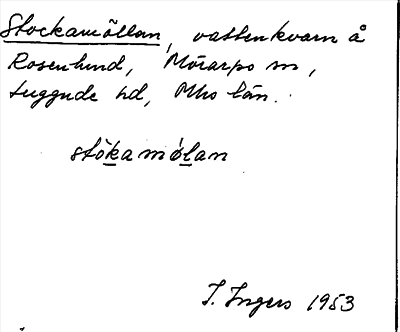 Stockamöllan, vattenkvarn å
Rosenlund, Mörarps sn,
Luggude hd, Mho län.
stòkamø̀lan
I. Ingers 1953